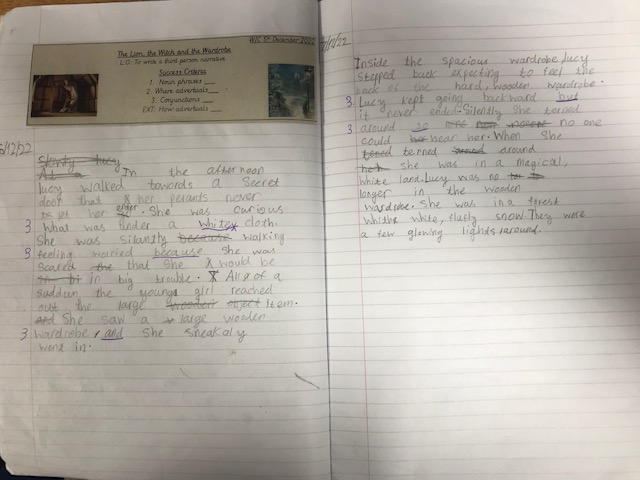 W/C 5th December 2022
The Lion, the Witch and the Wardrobe
L.O: To write a third person narrative
Success Criteria
1. Noun phrases ___
2. Where adverbials ___
3. Conjunctions ___
EXT: How adverbials ___
6/12/22
Slently lucy
At a
In the afternoon
lucy walked towards a secret
door that her perants never
let her enter. She was curious
3 what was under a white cloth.
She was silantly because walking
3 feeling worried because she was
scared the that she would be
in big trouble. All of a
suddun the young girl reached
out the large wooden object item.
and She saw a large wooden
3 wardrobe, and she sneakaly
went in.
7/12/22
Inside the spacious wardrobe, lucy
stepped back expecting to feel the
back of the hard, wooden wardrobe.
3 Lucy kept going backward but
it never ended. Silently she terned
3 around so no one
could her hear her. When she
terned around
she was in a magical,
white land. Lucy was no
longer in the wooden
wardrobe. She was in a forest
whith white, flufly snow. They were
a few glowing lights around.